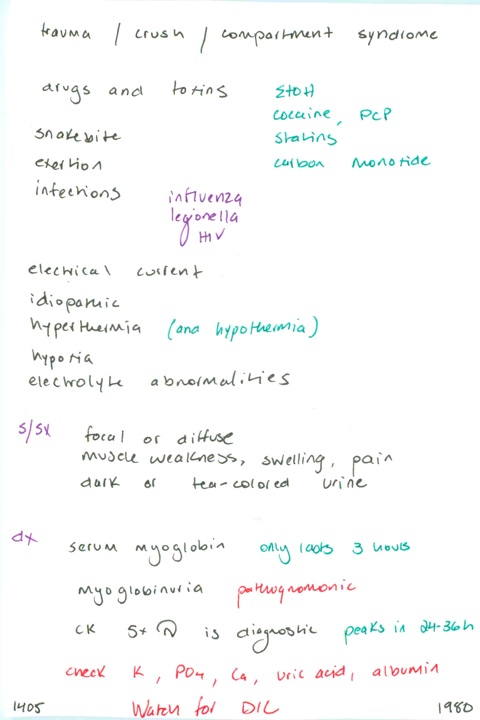 trauma / crush / compartment syndrome
drugs and toxins EtOH
cocaine, PCP
snakebite statins
exertion carbon monoxide
infections influenza
legionella
HIV
electrical current
idiopathic
hyperthermia (and hypothermia)
hypoxia
electrolyte abnormalities
s/sx focal or diffuse
muscle weakness, swelling, pain
dark or tea-colored urine
dx serum myoglobin only lasts 3 hours
myoglobinuria pathognomonic
CK 5x N is diagnostic peaks in 24-36h
check K, PO4, Ca, uric acid, albumin
1405 Watch for DIC 1980